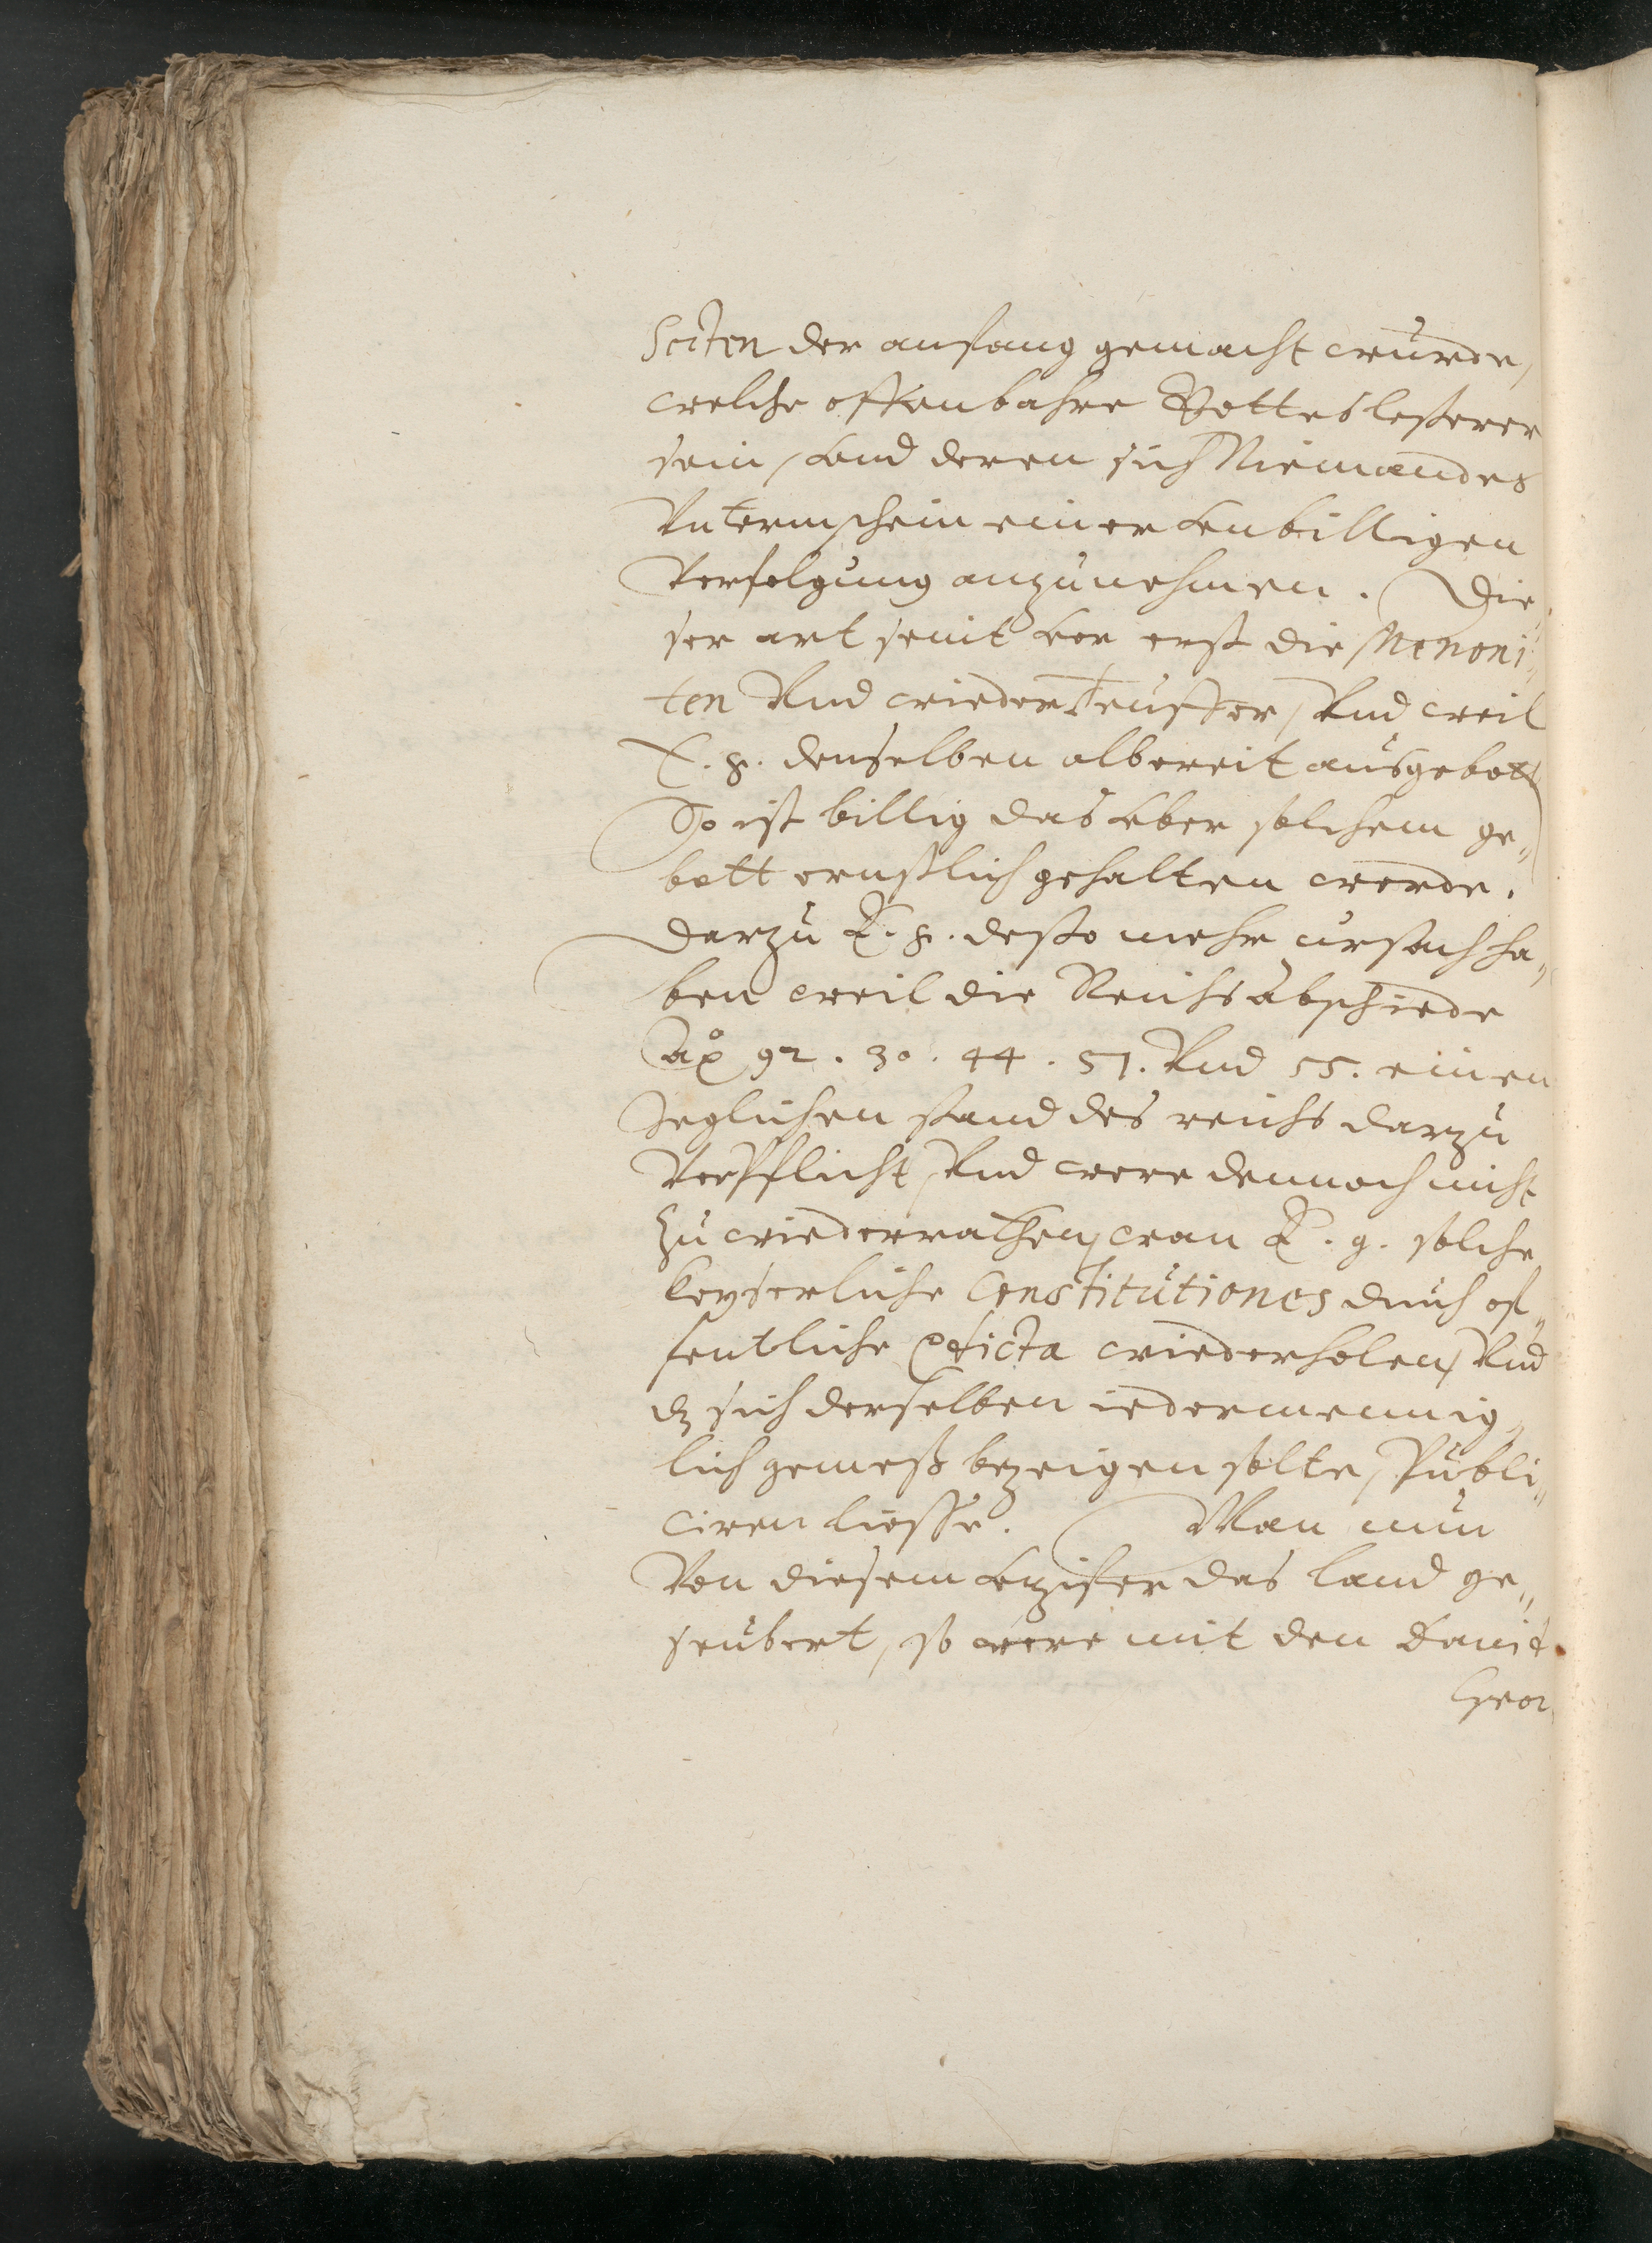 Secten der anfang gemacht würde,
welche offenbahre Gotteslesterer
sein, vnd deren sich Niemandes
Vnterm schein einer vnbilligen
Verfolgung anzunehmen. Die„
ser art seint vor erst die Menoni„
ten Vnd wiederteuffer, Vnd weil
E. g. denselben albereit ausgebott
So ist billig das vber solchem ge„
bott ernstlich gehalten werde.
Darzu E. g. desto mehr ursach ha„
ben weil die Reichs abschiede
Aō 92. 30. 44. 51. Vnd 55. einen
Jeglichen stand des reichs darzu
Verpflicht, Vnd were dennoch nicht
zu wiederrathen, wan E. g. solche
keyserliche Constitutiones durch of„
fentliche Edicta wiederholen, Vnd
dz sich derselben iedermennig„
lich gemeß bezeigen solte, Publi„
ciren liesse. Wan nun
Von diesem vnzifer das land ge„
seubert, so were mit den Dauid
Geor„